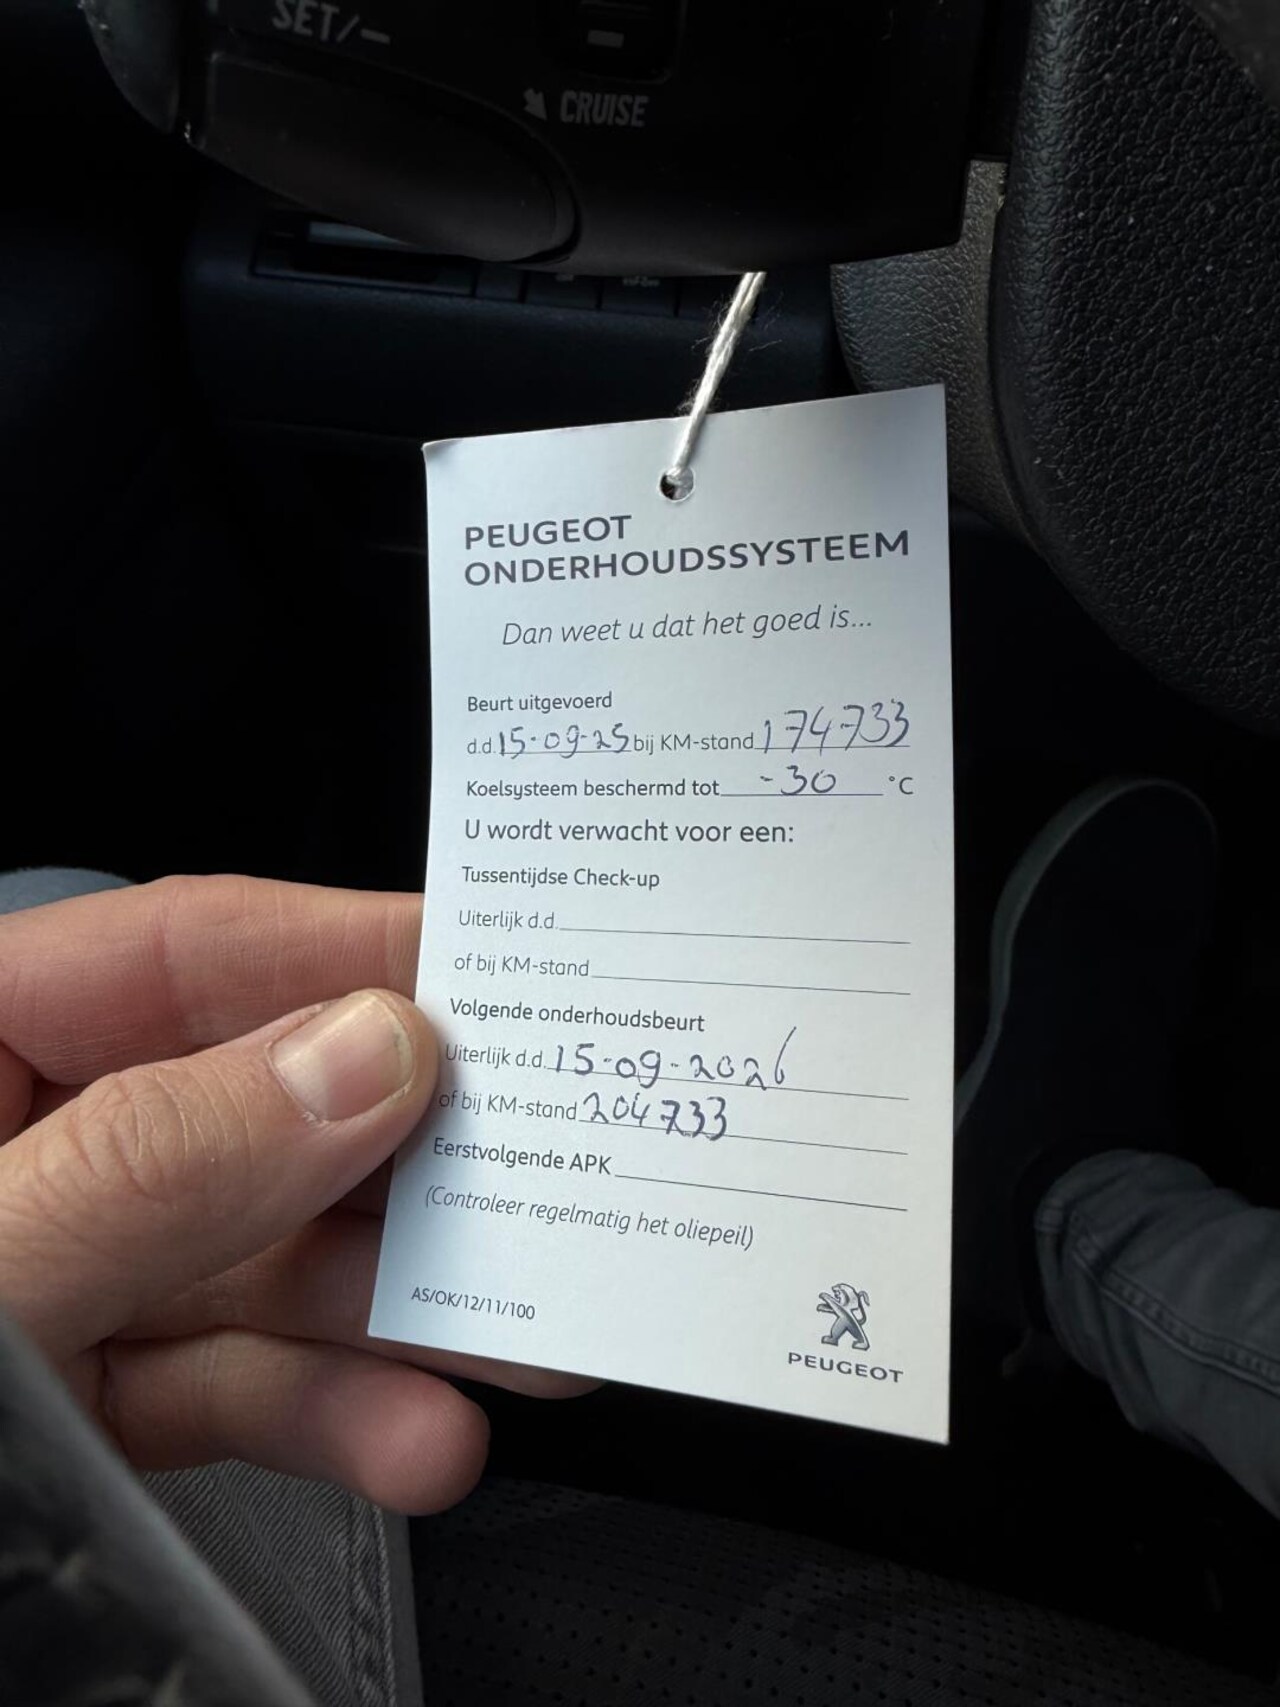 SET/–
CRUISE
PEUGEOT
ONDERHOUDSSYSTEEM
Dan weet u dat het goed is...
Beurt uitgevoerd
d.d. 15-09-25 bij KM-stand 174733
Koelsysteem beschermd tot -30 °C
U wordt verwacht voor een:
Tussentijdse Check-up
Uiterlijk d.d.
of bij KM-stand
Volgende onderhoudsbeurt
Uiterlijk d.d. 15-09-2026
of bij KM-stand 204733
Eerstvolgende APK
(Controleer regelmatig het oliepeil)
AS/OK/12/11/100
PEUGEOT